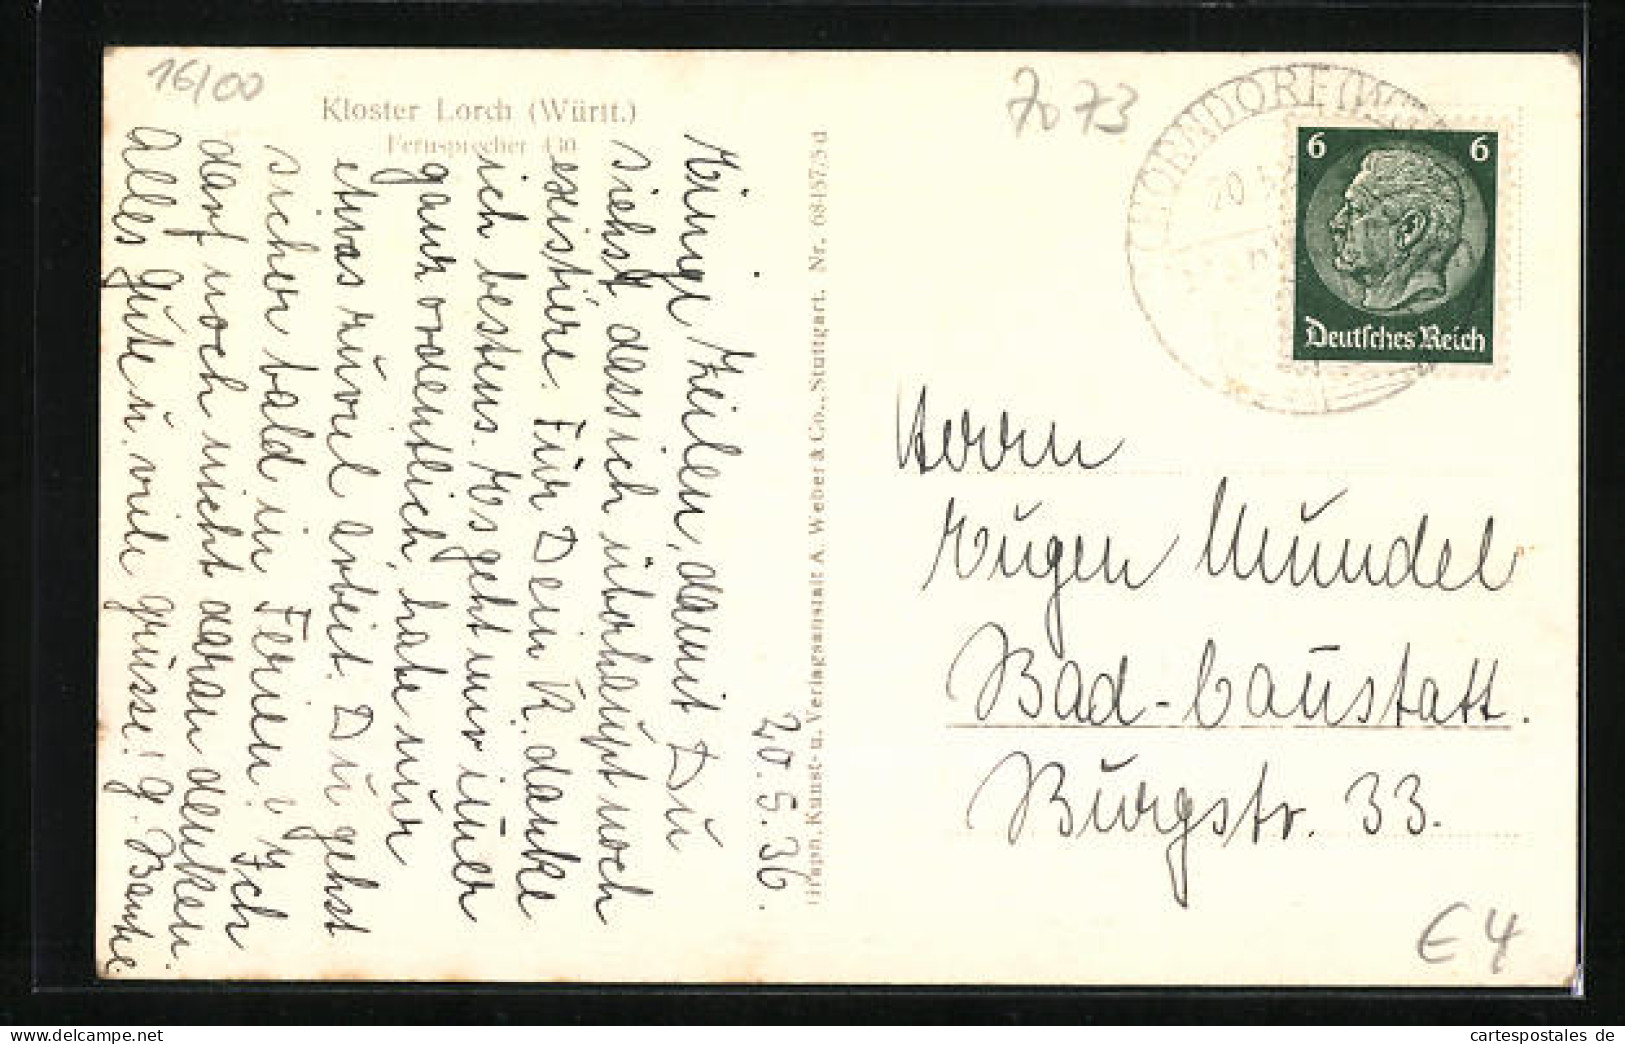 16/00
Kloster Lorch (Württ.)
Fernsprecher 430
7073
SCHORNDORF (WÜRTT
20.5.
6 6
Deutsches Reich
20. 5. 36.
Einige Zeilen, damit Du
siehst dass ich überhaupt noch
existiere. Für Dein K. danke
ich bestens. Es geht mir im̄er
ganz ordentlich, habe nur
etwas zuviel Arbeit. Du gehst
sicher bald in Ferien? Ich
darf noch nicht daran denken.
Alles Gute u. viele Grüsse! G.
Graph. Kunst- u. Verlagsanstalt A. Weber & Co., Stuttgart. Nr. 68457,5 d
Herrn
Eugen Mundel
Bad-Canstatt.
Burgstr. 33.
€ 4
cartespostales de